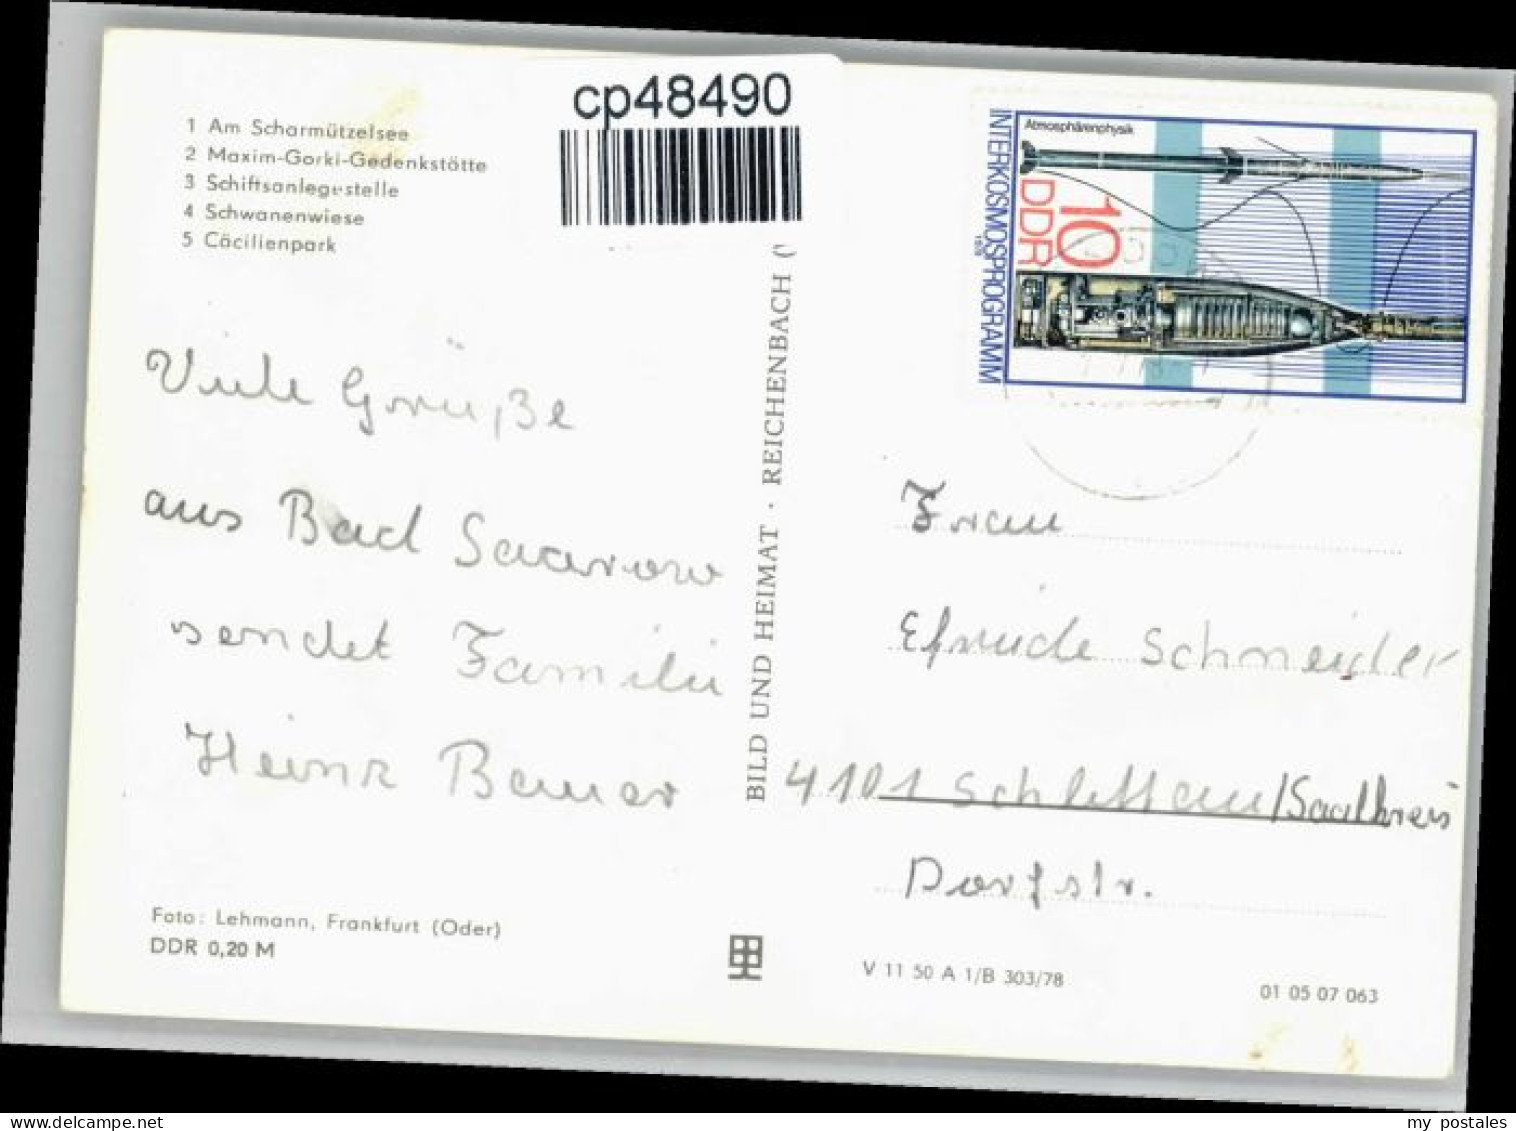 cp48490
1 Am Scharmützelsee
2 Maxim-Gorki-Gedenkstätte
3 Schiffsanlegestelle
4 Schwanenwiese
5 Cäcilienpark
Viele Grüße
aus Bad Saarow
sendet Familie
Heinz Bauer
Foto: Lehmann, Frankfurt (Oder)
DDR 0,20 M
BILD UND HEIMAT · REICHENBACH (V
INTERKOSMOSPROGRAMM
1978
Atmosphärenphysik
10
DDR
Frau
Schneider
4101 /Saalkreis
Dorfstr.
V 11 50 A 1/B 303/78
01 05 07 063
oldthing.de
my postales